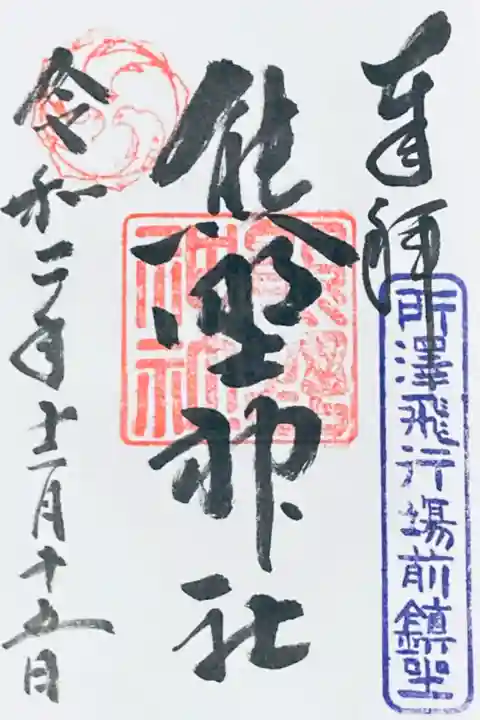 奉拝
所澤飛行場前鎮坐
熊野神社
令和二年十二月十五日